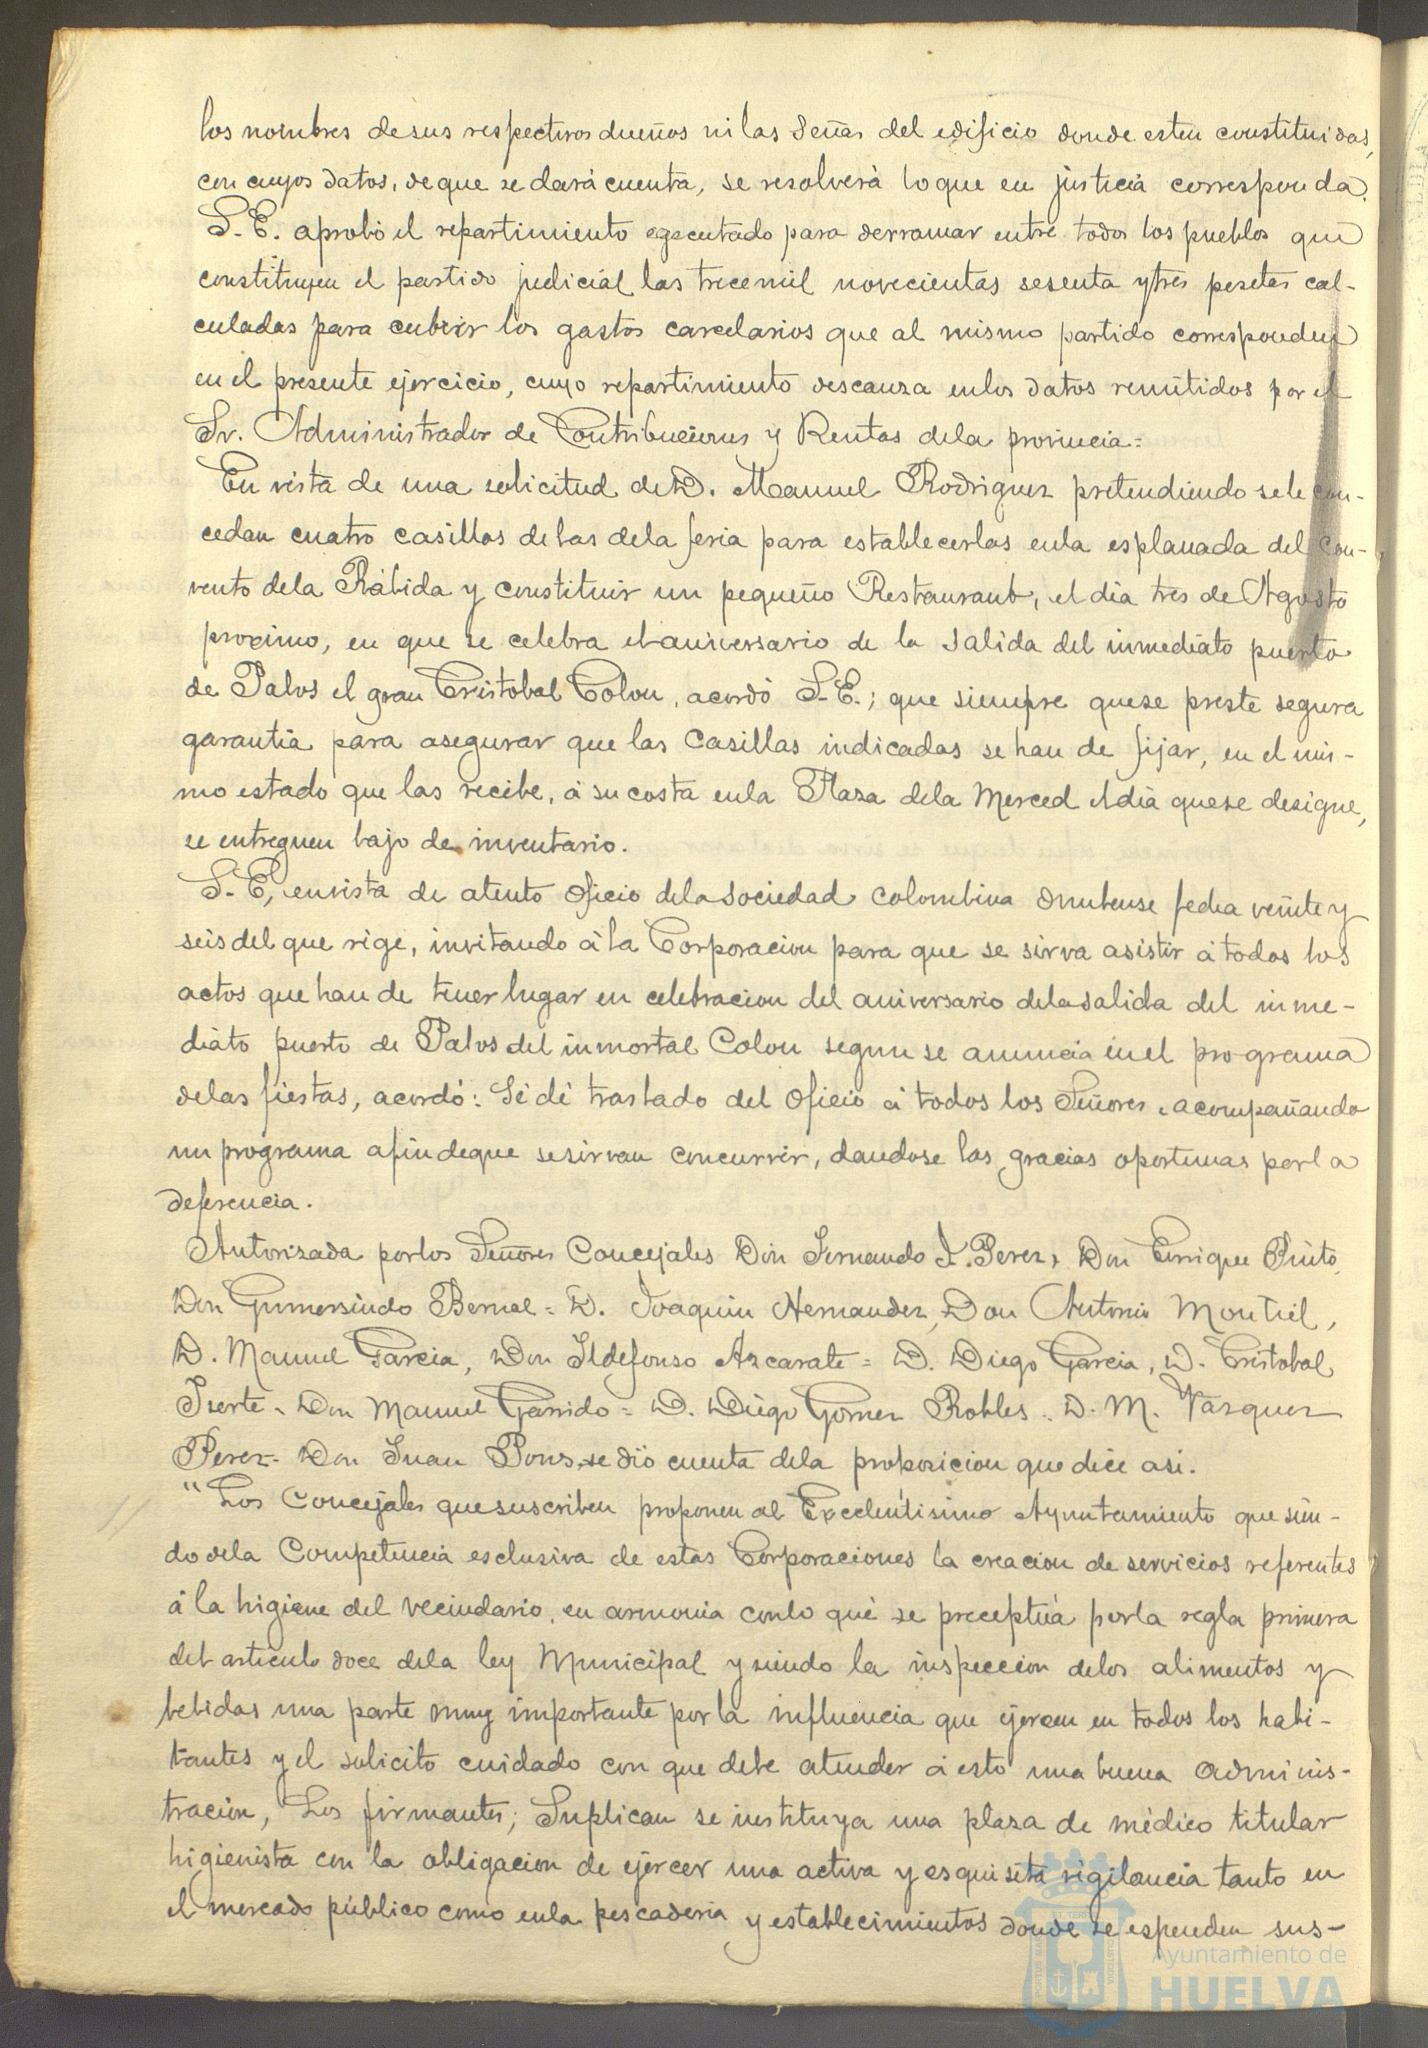 los nombres de sus respectivos dueños ni las señas del edificio donde esten constituidas,
con cuyos datos, de que se dará cuenta, se resolverá lo que en justicia corresponda.
S. E. aprobó el repartimiento egecutado para derramar entre todos los pueblos que
constituyen el partido judicial las trece mil novecientas sesenta y tres pesetas cal-
culadas para cubrir los gastos carcelarios que al mismo partido corresponden
en el presente ejercicio, cuyo repartimiento descanza en los datos remitidos por el
Sr. Administrador de Contribuciones y Rentas de la provincia =
En vista de una solicitud de D. Manuel Rodriguez pretendiendo se le con-
cedan cuatro casillas de las de la feria para establecerlas en la esplanada del Con-
vento de la Rábida y constituir un pequeño Restaurant, el dia tres de Agosto
procsimo, en que se celebra el aniversario de la salida del inmediato puerto
de Palos el gran Cristobal Colon, acordó S. E.; que siempre que se preste segura
garantia para asegurar que las Casillas indicadas se han de fijar, en el mis-
mo estado que las recibe, á su costa en la Plaza de la Merced el dia que se designe,
se entreguen bajo de inventario.
S. E, en vista de atento oficio de la sociedad Colombina Onubense fecha veinte y
seis del que rige, invitando á la Corporacion para que se sirva asistir á todos los
actos que han de tener lugar en celebracion del aniversario de la salida del inme-
diato puerto de Palos del inmortal Colon segun se anuncia en el programa
de las fiestas, acordó: Se dé traslado del oficio á todos los Señores acompañando
un programa a fin de que se sirvan concurrir, dandose las gracias oportunas por la
deferencia.
Autorizada por los Señores Concejales Don Fernando Perez, Don Enrique Pinto,
Don Gumersindo Bernal = D. Joaquin Hernandez, Don Antonio Montiel,
D. Manuel Garcia, Don Ildefonso Azcarate = D. Diego Garcia, D. Cristobal
Iserte = Don Manuel Garrido = D. Diego Gomez Robles = D. M. Vazquez
Perez = Don Juan Pons, se dió cuenta de la proposicion que dice asi.
"Los Concejales que suscriben proponen al Excelentisimo Ayuntamiento que sien-
do de la Competencia esclusiva de estas Corporaciones la creacion de servicios referentes
á la higiene del vecindario, en armonia con lo que se preceptúa por la regla primera
del articulo doce de la ley Municipal y siendo la inspeccion de los alimentos y
bebidas una parte muy importante por la influencia que ejercen en todos los habi-
tantes y el solicito cuidado con que debe atender á esto una buena adminis-
tracion, Los firmantes; Suplican se instituya una plaza de médico titular
higienista con la obligacion de ejercer una activa y esquisita vigilancia tanto en
el mercado público como en la pescaderia y establecimientos donde se espenden sus-
Ayuntamiento de
HUELVA